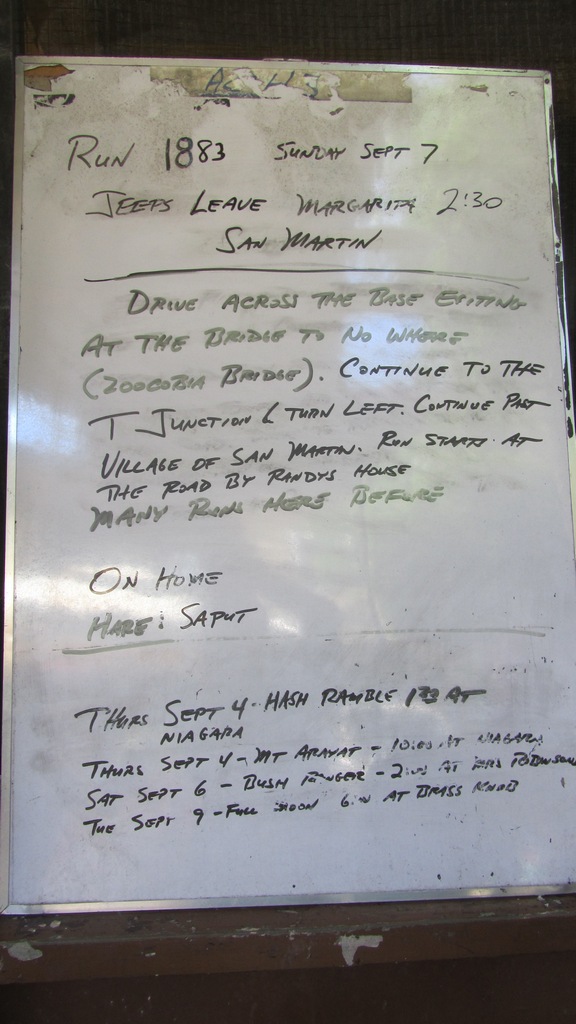 RUN 1883 SUNDAY SEPT 7
JEEPS LEAVE MARGARITA 2:30
SAN MARTIN
DRIVE ACROSS THE BASE EXITING
AT THE BRIDGE TO NO WHERE
(ZOOCOBIA BRIDGE). CONTINUE TO THE
T JUNCTION & TURN LEFT. CONTINUE PAST
VILLAGE OF SAN MARTIN. RUN STARTS AT
THE ROAD BY RANDYS HOUSE
MANY RUNS HERE BEFORE
ON HOME
HARE: SAPUT
THURS SEPT 4 - HASH RAMBLE AT
NIAGARA
THURS SEPT 4 - MT ARAYAT - 10:00 AT NIAGARA
SAT SEPT 6 - BUSH RANGER - 2:00 AT MRS ROBINSONS
TUE SEPT 9 - FULL MOON AT BRASS KNOB